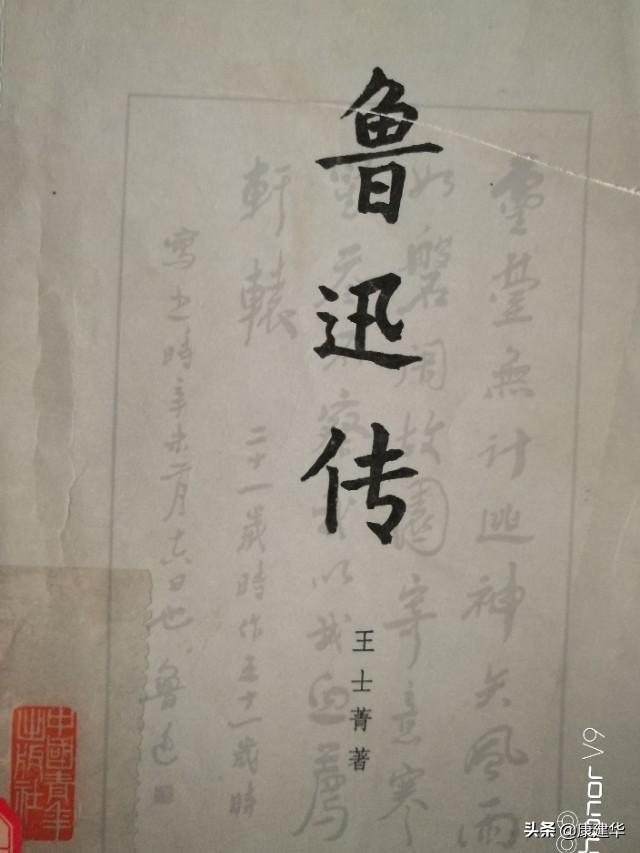 鲁迅传
王士菁著
靈臺無計逃神矢風雨
如磐闇故園寄意寒
星 以我血薦
軒轅 二十一歲時作五十一歲時
寫之時辛未二月十六日也 魯迅
中國青年
出版社
honor V9
头条 @康建华